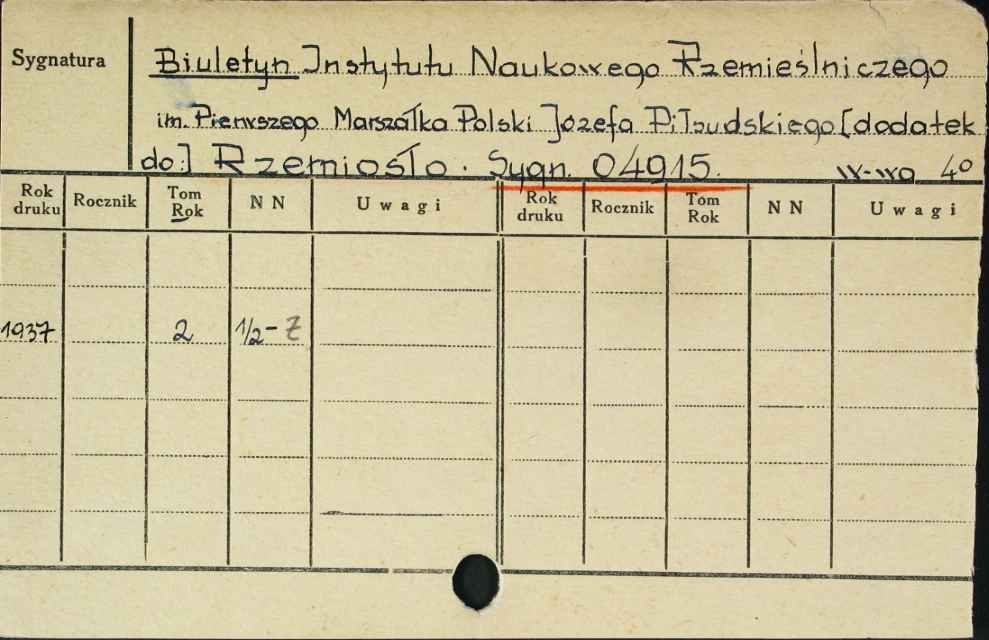 Sygnatura
Biuletyn Instytutu Naukowego Rzemieślniczego
im. Pierwszego Marszałka Polski Józefa Piłsudskiego [dodatek
do:] Rzemiosło. Sygn. 04915. W-wa 4°
Rok druku Rocznik Tom Rok NN Uwagi Rok druku Rocznik Tom Rok NN Uwagi
1937 2 1/2-Z